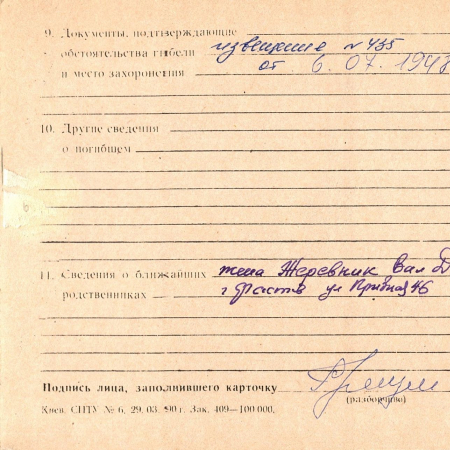 9. Документы, подтверждающие
обстоятельства гибели извещение № 435
и место захоронения от 6.07.1948
10. Другие сведения
о погибшем
11. Сведения о ближайших жена Жеревник Вал
родственниках г Фастов ул 46
Подпись лица, заполнившего карточку
(разборчиво)
Киев. СПТУ № 6, 29. 03. 90 г. Зак. 409—100 000.